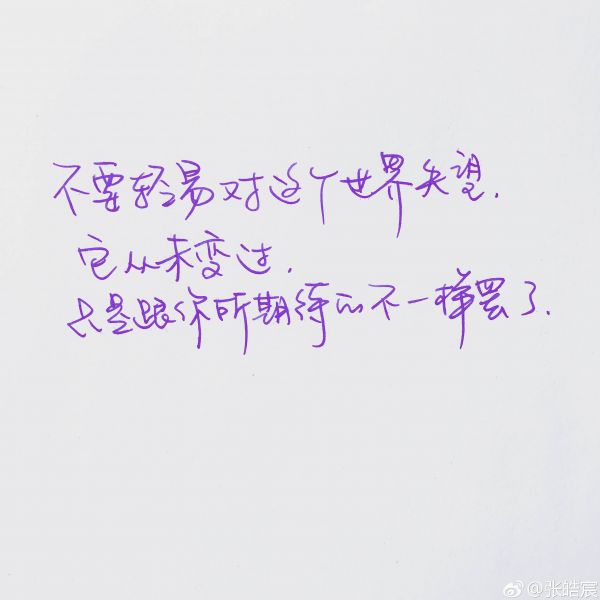 不要轻易对这个世界失望.
它从未变过.
只是跟你所期待的不一样罢了.
@张皓宸